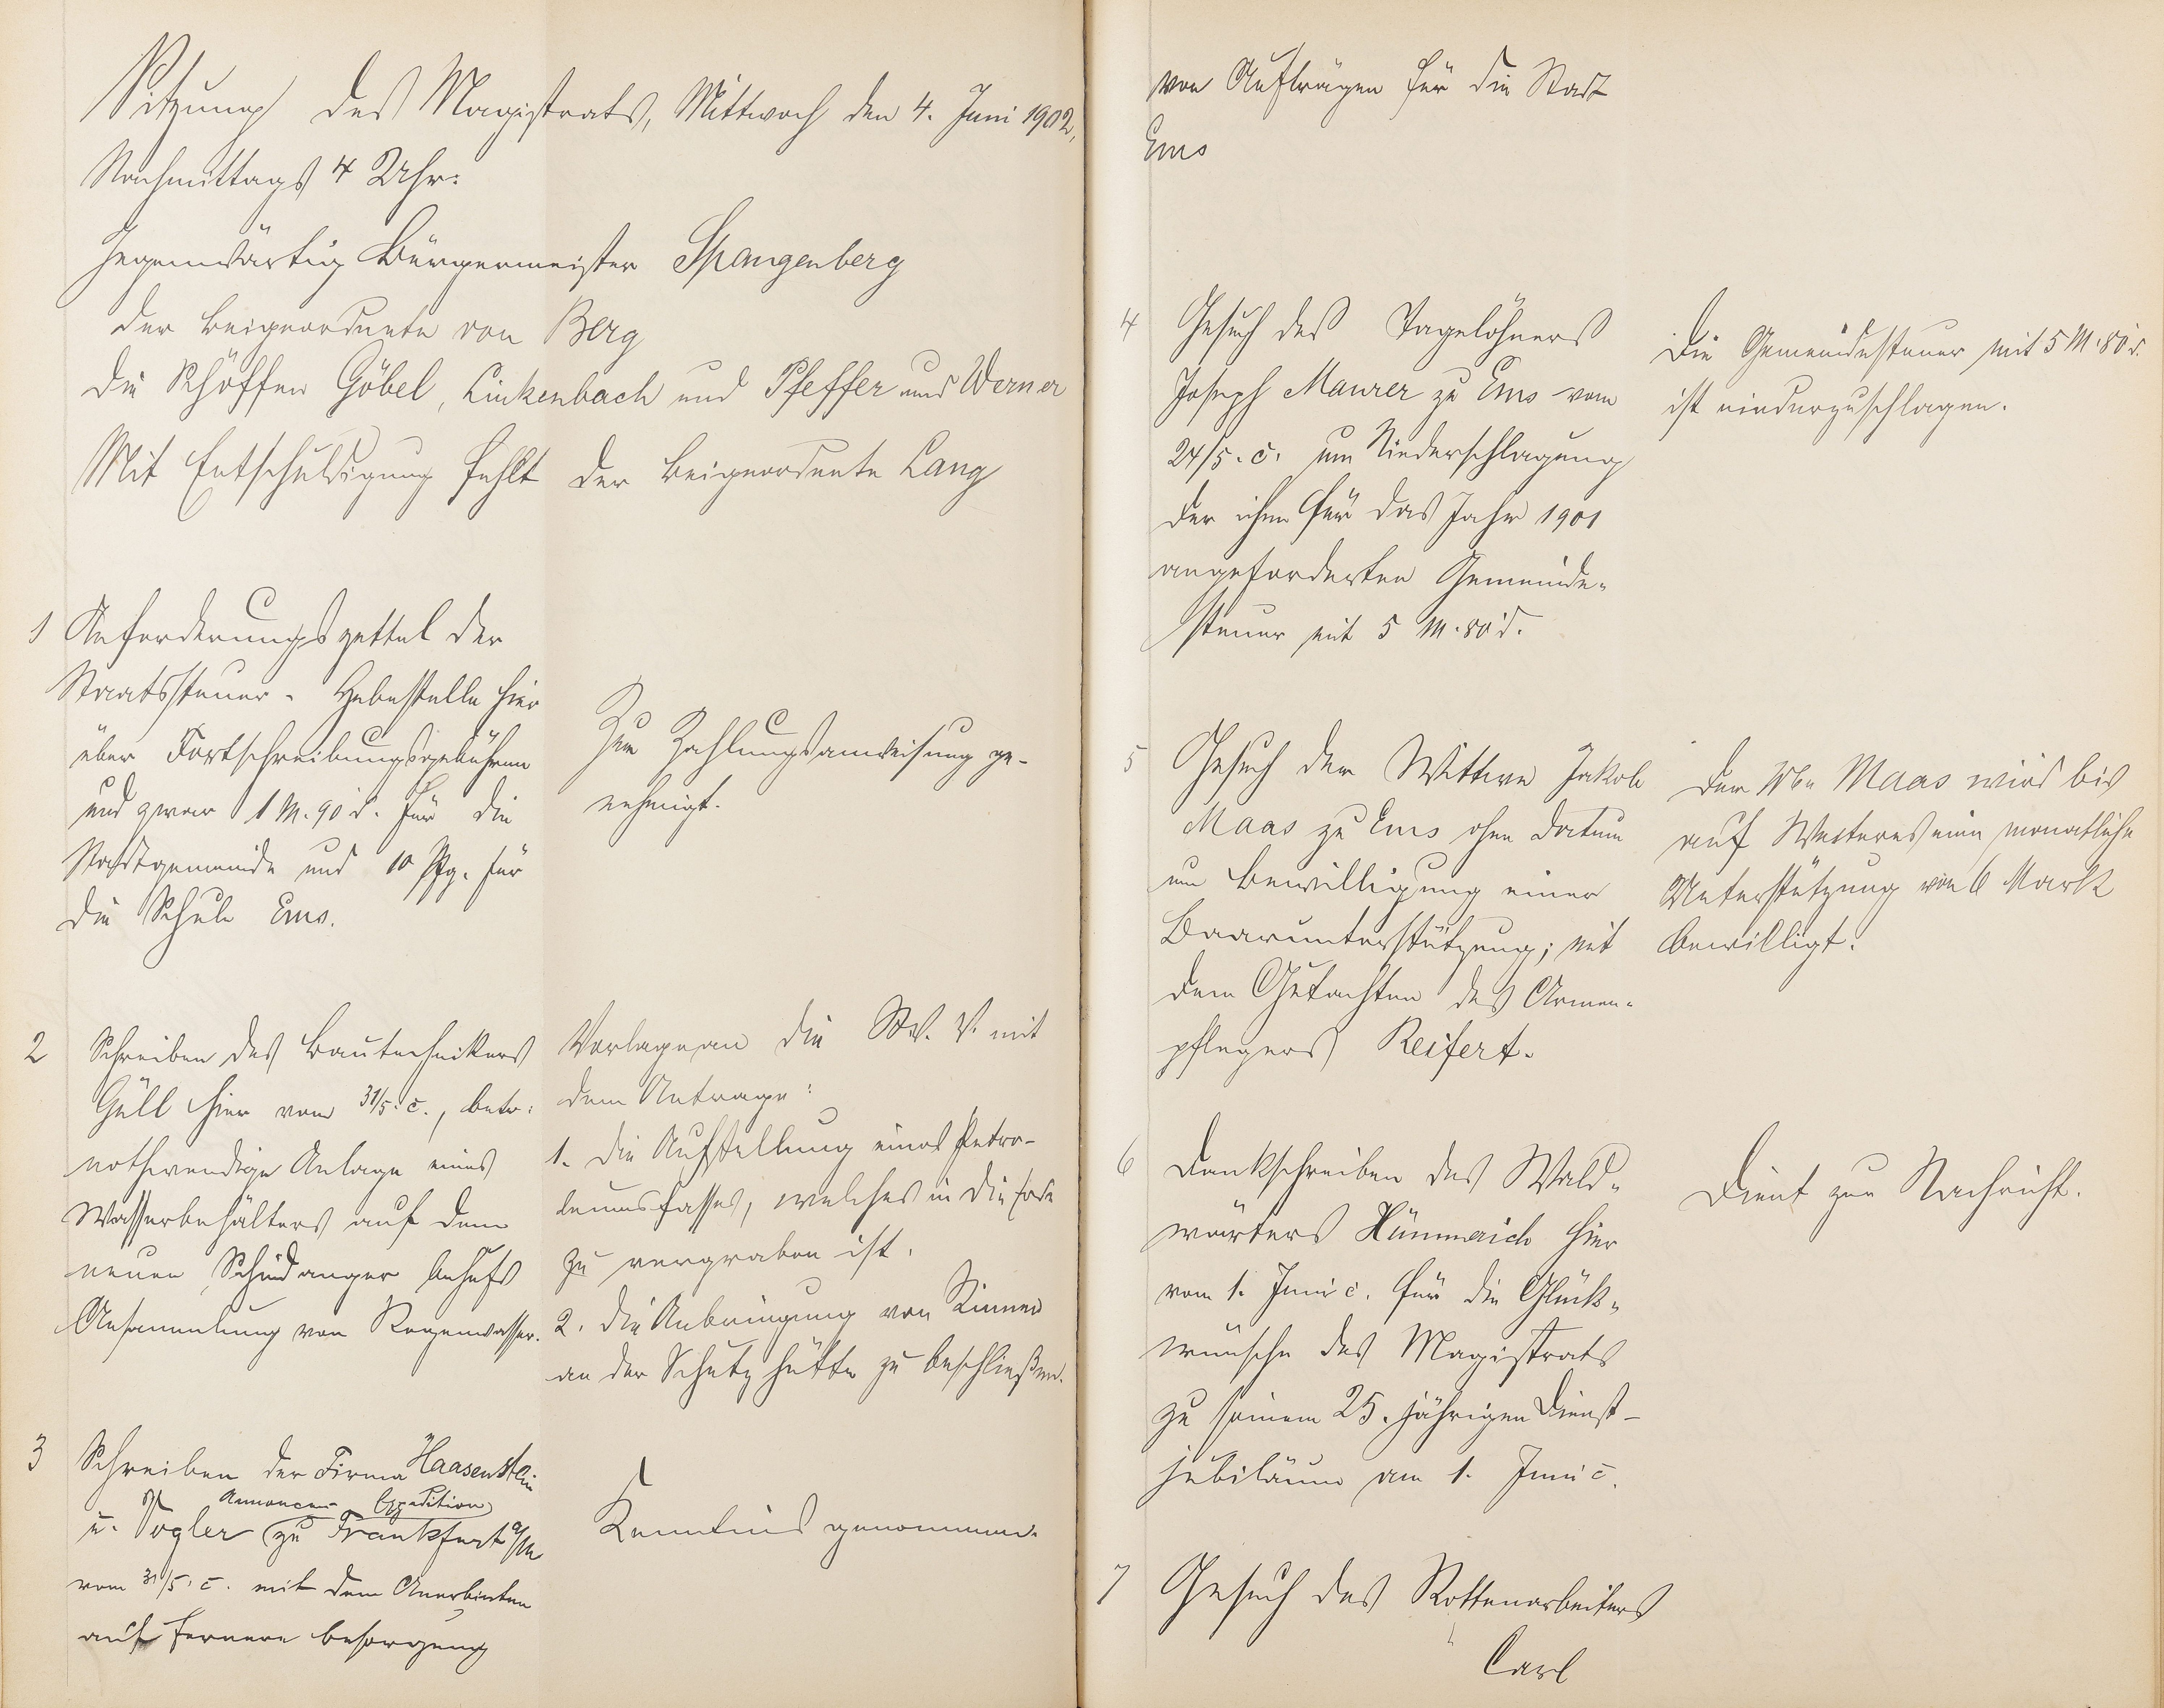 Sitzung des Magistrats, Mittwoch den 4. Juni 1902,
Nachmittags 4 Uhr.
Gegenwärtig Bürgermeister Spangenberg
der Beigeordnete von Berg
die Schöffen Göbel, Linkenbach und Pfeffer und Werner
Mit Entschuldigung fehlt der Beigeordnete Lang
1 Anforderungszettel der
Staatssteuer-Hebestelle hier
über Fortschreibungsgebühren
und zwar 1 M. 90 d. für die
Stadtgemeinde und 10 Pfg. für
die Schule Ems.
Zur Zahlungsanweisung ge-
nehmigt.
2 Schreiben des Bautechnikers
Güll hier vom 31/5. c., betr:
nothwendige Anlage eines
Wasserbehälters auf dem
neuen Schindanger behufs
Ansammlung von Regenwasser.
Vorlage an die St. V. mit
dem Antrage:
1. die Aufstellung eines Petro-
leumsfasses, welches in die Erde
zu vergraben ist.
2. die Anbringung von Rinnen
an der Schutzhütte zu beschließen.
3 Schreiben der Firma Haasenstein
u. Vogler Annoncen-Expedition zu Frankfurt a/M
vom 31/5. c. mit dem Anerbieten
auf fernere Besorgung
Kenntnis genommen.
von Aufträgen für die Stadt
Ems
4 Gesuch des Tagelöhners
Joseph Maurer zu Ems vom
24/5. c. um Niederschlagung
der ihm für das Jahr 1901
angeforderten Gemeinde-
steuer mit 5 M. 80 d.
Die Gemeindesteuer mit 5 M. 80 d.
ist niederzuschlagen.
5 Gesuch der Wittwe Jakob
Maas zu Ems ohne Datum
um Bewilligung einer
Baarunterstützung; mit
dem Gutachten des Armen-
pflegers Reifert.
Der Wwe Maas wird bis
auf Weiteres eine monatliche
Unterstützung von 6 Mark
bewilligt.
6 Dankschreiben des Wald-
wärters Hümmerich hier
vom 1. Juni c. für die Glück-
wünsche des Magistrats
zu seinem 25. jährigen Dienst-
jubiläum am 1. Juni c.
Dient zur Nachricht.
7 Gesuch des Rottenarbeiters
Carl